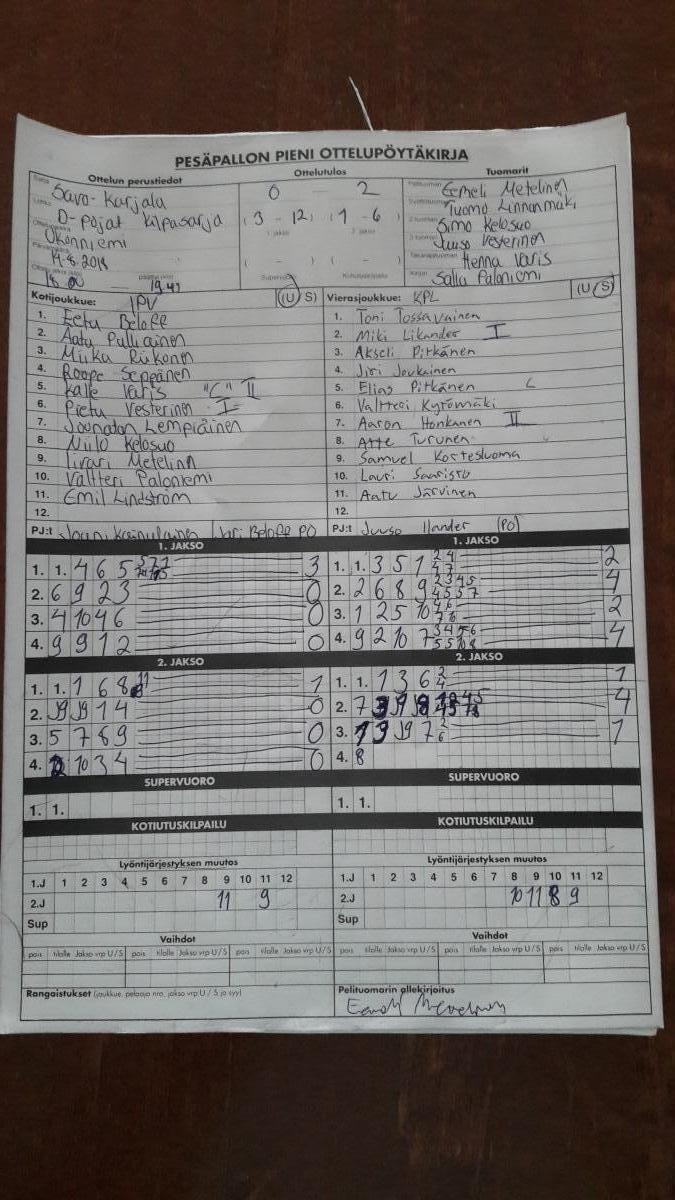 PESÄPALLON PIENI OTTELUPÖYTÄKIRJA
Ottelun perustiedot
Ottelutulos
Tuomarit
Savo-Karjala
D-pojat kilpasarja
Okonniemi
14.8.2018
19.41
0 - 2
(3 - 12) (1 - 6)
( - ) ( - )
Eemeli Metelinen
Tuomo Linnanmäki
Simo Kelosuo
Juuso Vesterinen
Henna Varis
Salla Paloniemi
Kotijoukkue: IPV (U S)
1. Eetu Beloff
2. Aatu Pulliainen
3. Miika Riikonen
4. Roope Seppänen
5. Kalle Varis "C" II
6. Pietu Vesterinen I
7. Joonatan Lempiäinen
8. Niilo Kelosuo
9. Iivari Metelinen
10. Valtteri Paloniemi
11. Emil Lindström
12.
PJ:t Joani Kainulainen Jari Beloff PO
Vierasjoukkue: KPL (U S)
1. Toni Tossavainen
2. Miki Likander I
3. Akseli Pitkänen
4. Jiri Joukainen
5. Elias Pitkänen C
6. Valtteri Kytömäki
7. Aaron Honkanen II
8. Atte Turunen
9. Samuel Kortesluoma
10. Lauri Saaristo
11. Aatu Järvinen
12.
PJ:t Juuso Ilander (PO)
1. JAKSO
1. 1. 4 6 5 3
2. 6 9 2 3 0
3. 4 10 4 6 0
4. 9 9 1 2 0
1. JAKSO
1. 1. 3 5 1 2 4 4 7 2
2. 2 6 8 9 2 3 4 5 4 5 5 7 4
3. 1 2 5 10 4 6 7 8 2
4. 9 2 10 7 3 4 5 6 5 5 10 8 4
2. JAKSO
1. 1. 1 6 8 1
2. 1 4 0
3. 5 7 8 9 0
4. 10 3 4 0
2. JAKSO
1. 1. 1 3 6 2 4 1
2. 7 4
3. 7 2 6 1
4. 8
SUPERVUORO
1. 1.
SUPERVUORO
1. 1.
KOTIUTUSKILPAILU
KOTIUTUSKILPAILU
Lyöntijärjestyksen muutos
1.J 1 2 3 4 5 6 7 8 9 10 11 12
2.J 11 9
Sup
Lyöntijärjestyksen muutos
1.J 1 2 3 4 5 6 7 8 9 10 11 12
2.J 10 11 8 9
Sup
Vaihdot
pois tilalle Jakso vrp U/S pois tilalle Jakso vrp U/S pois tilalle Jakso vrp U/S
Vaihdot
pois tilalle Jakso vrp U/S pois tilalle Jakso vrp U/S pois tilalle Jakso vrp U/S
Rangaistukset (joukkue, pelaaja nro, jakso vrp U / S ja syy)
Pelituomarin allekirjoitus